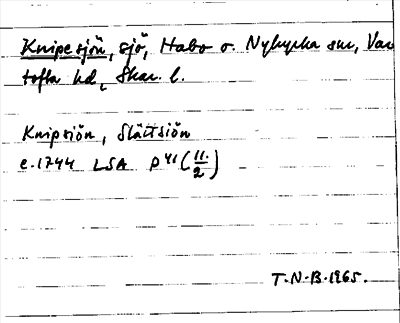 Knipesjön, sjö, Habo o. Nykyrka snr, Var
tofta hd, Skar. l.
Knipsiön, Slättsiön
c. 1744 LSA P 41 (11/2)
T.N.B. 1965.